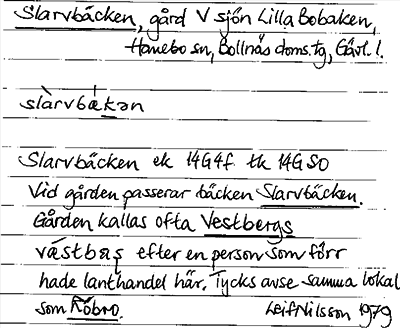 Slarvbäcken, gård V sjön Lilla Bobaken,
Hanebo sn, Bollnäs doms.tg, Gävl. l.
slàrvbäkən
Slarvbäcken ek 14G4f tk 14GSO
Vid gården passerar bäcken Slarvbäcken.
Gården kallas ofta Vestbergs
västbas efter en person som förr
hade lanthandel här. Tycks avse samma lokal
som Röbro. Leif Nilsson 1979